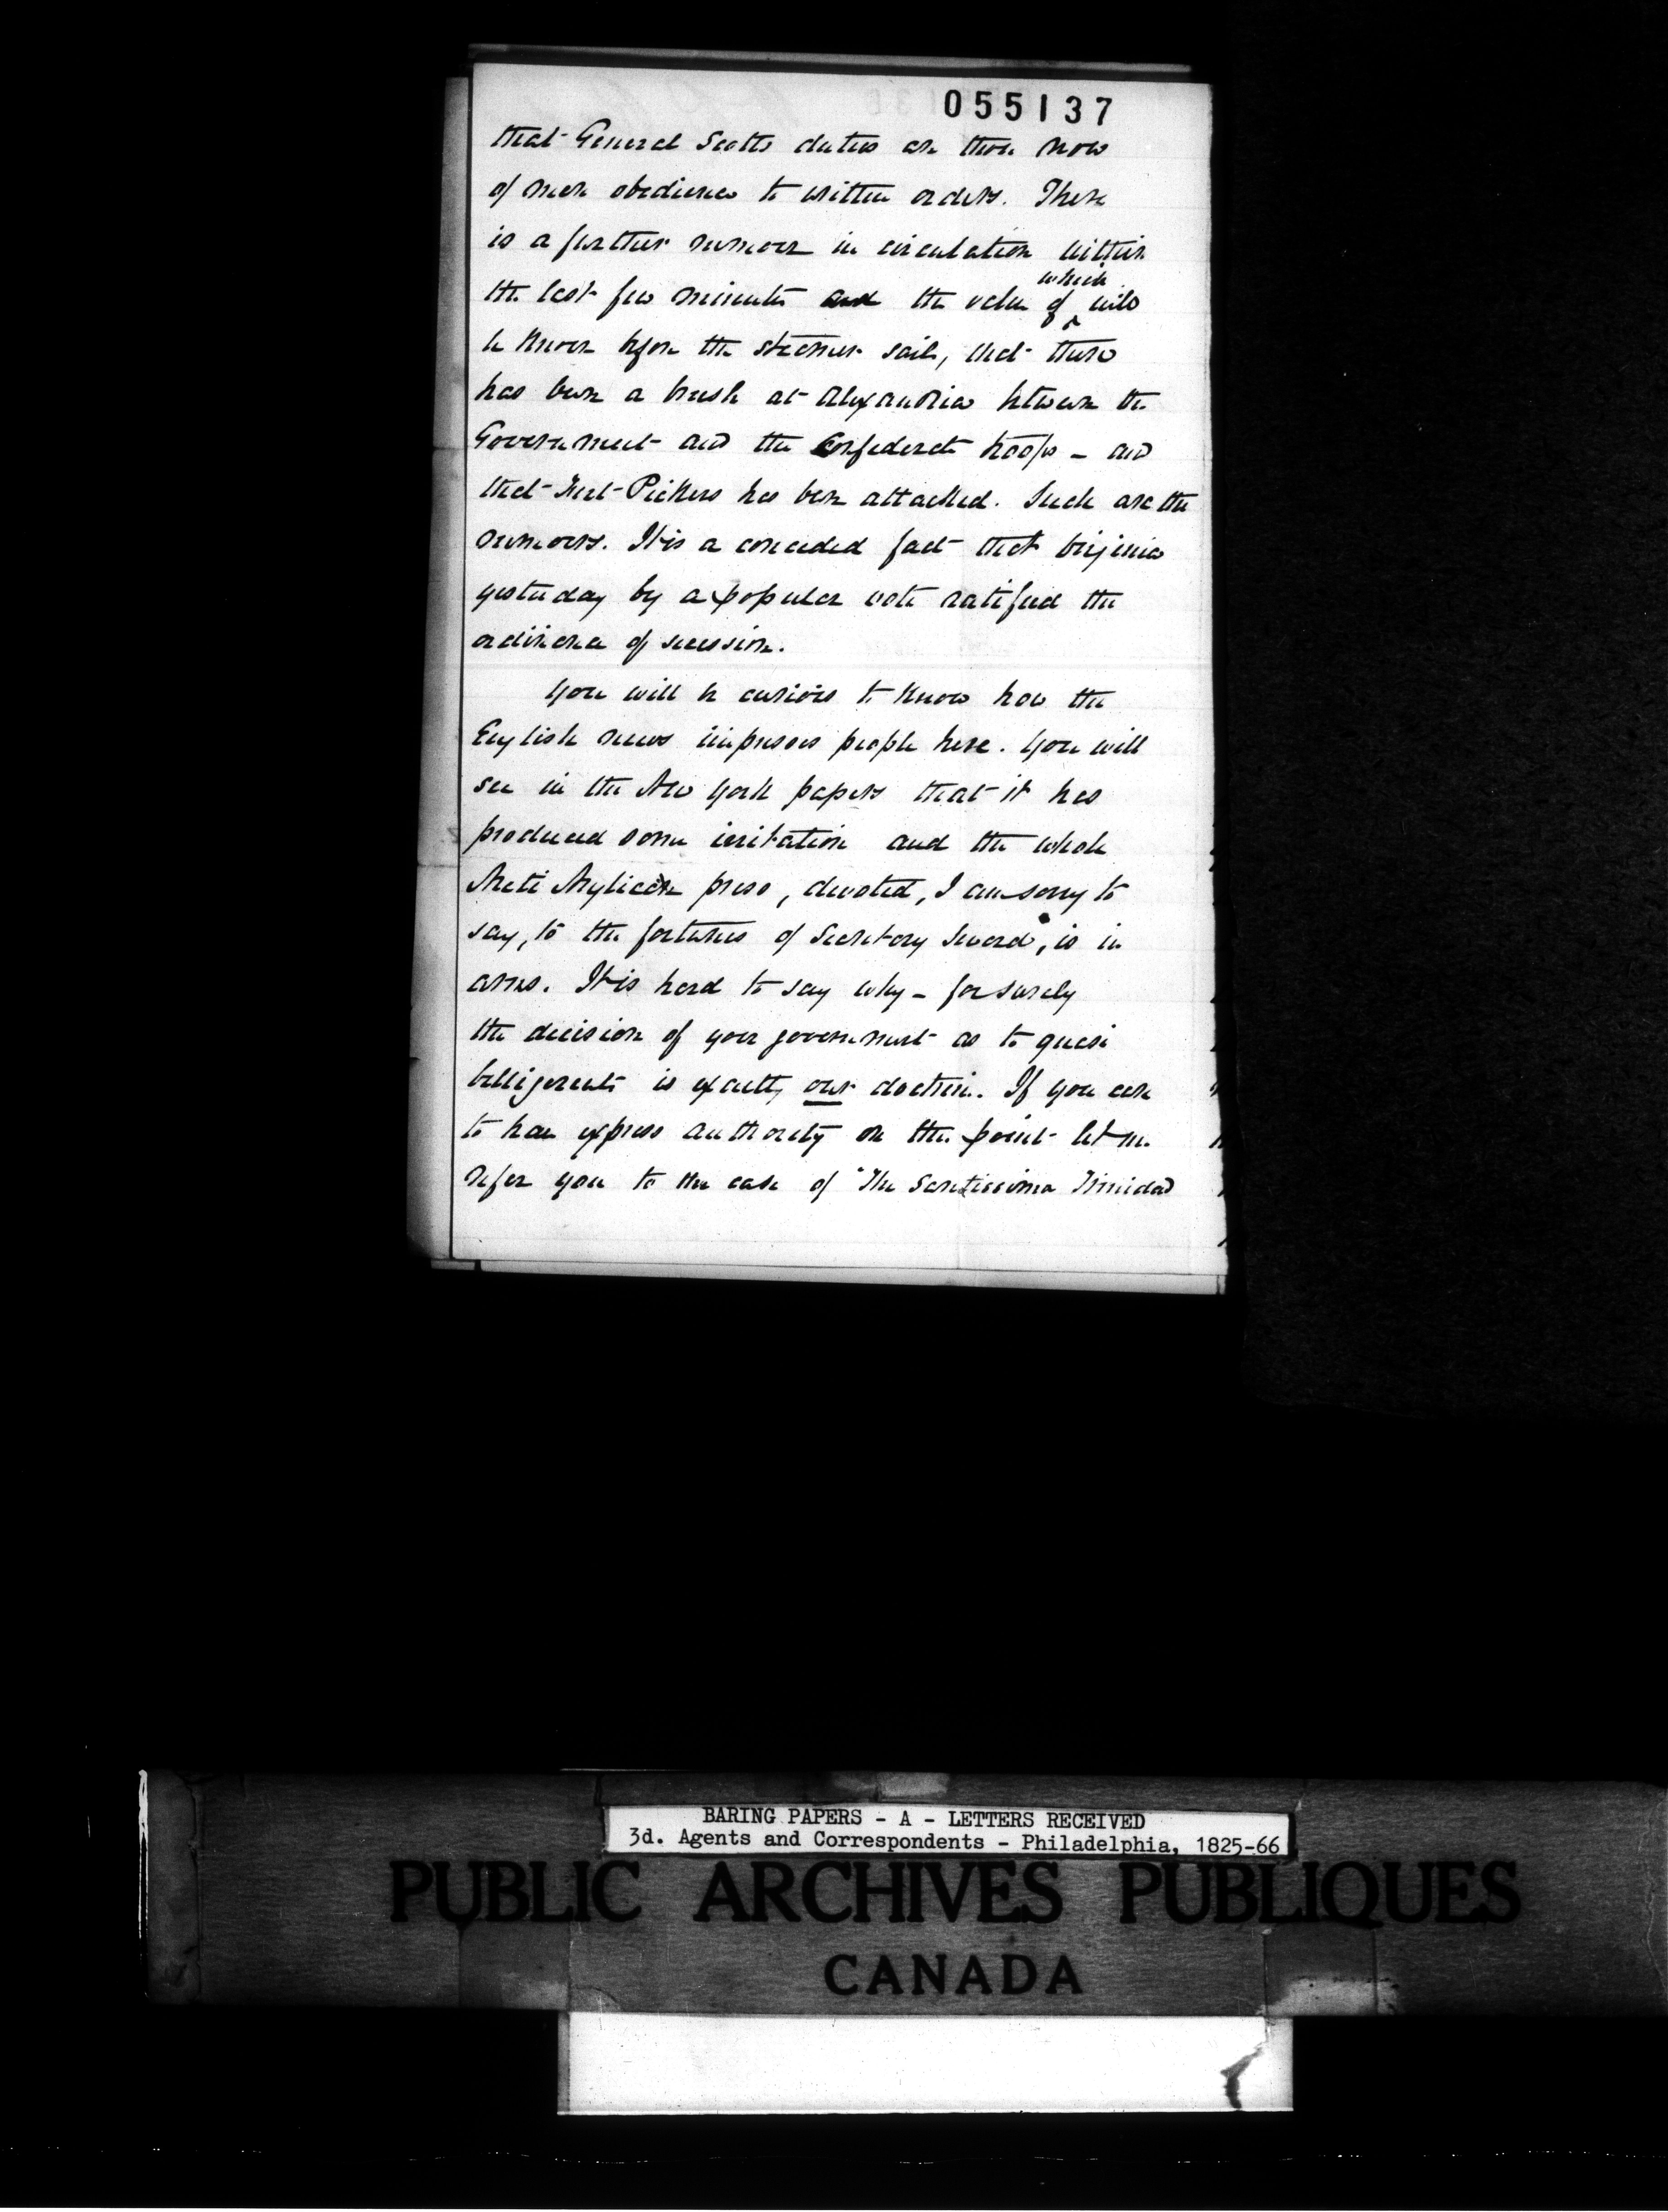 055137
that General Scotts duties are those now
of mere obedience to written orders. There
is a further rumour in circulation within
the last few minutes and the value of which will
be known before the steamer sails, that there
has been a brush at Alexandria between the
Government and the Confederate troops - and
that Fort Pickens has been attacked. Such are the
rumours. It is a conceded fact that Virginia
yesterday by a popular vote ratified the
ordinance of secession.
You will be curious to know how the
English news impresses people here. You will
see in the New York papers that it has
produced some irritation and the whole
Anti Anglican press, devoted, I am sorry to
say, to the fortunes of Secretary Seward, is in
arms. It is hard to say why - for surely
the decision of your government as to quasi
belligerents is exactly our doctrine. If you care
to have express authority on the point let me
refer you to the case of "The Santissima Trinidad
BARING PAPERS - A - LETTERS RECEIVED
3d. Agents and Correspondents - Philadelphia, 1825-66
PUBLIC ARCHIVES PUBLIQUES
CANADA